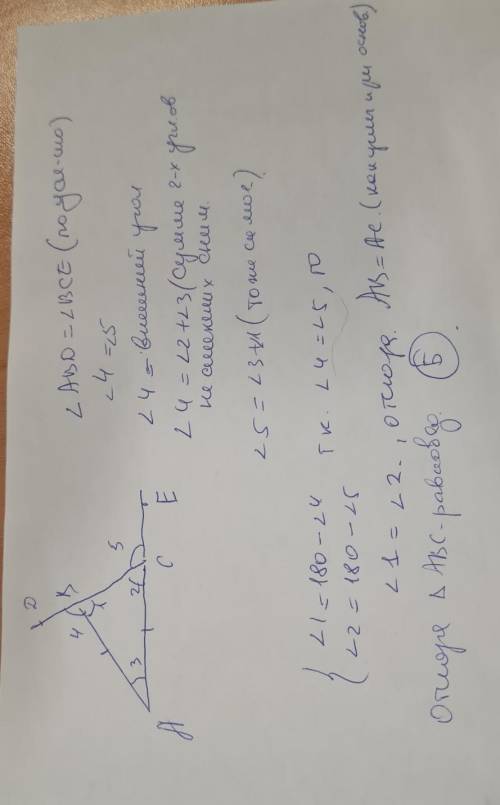 D
B
4
1
S
E
2
C
3
A
∠ABD = ∠BCE (по усл-ию)
∠4 = ∠5
∠4 = внешний угол
∠4 = ∠2+∠3 (сумме 2-х углов
не смежных с ним.
∠5 = ∠3+∠1 (тоже самое)
∠1 = 180 - ∠4 т.к. ∠4 = ∠5, то
∠2 = 180 - ∠5
∠1 = ∠2, отсюда. AB = AC. (как углы при основ)
Отсюда Δ ABC - равнобед. Б.